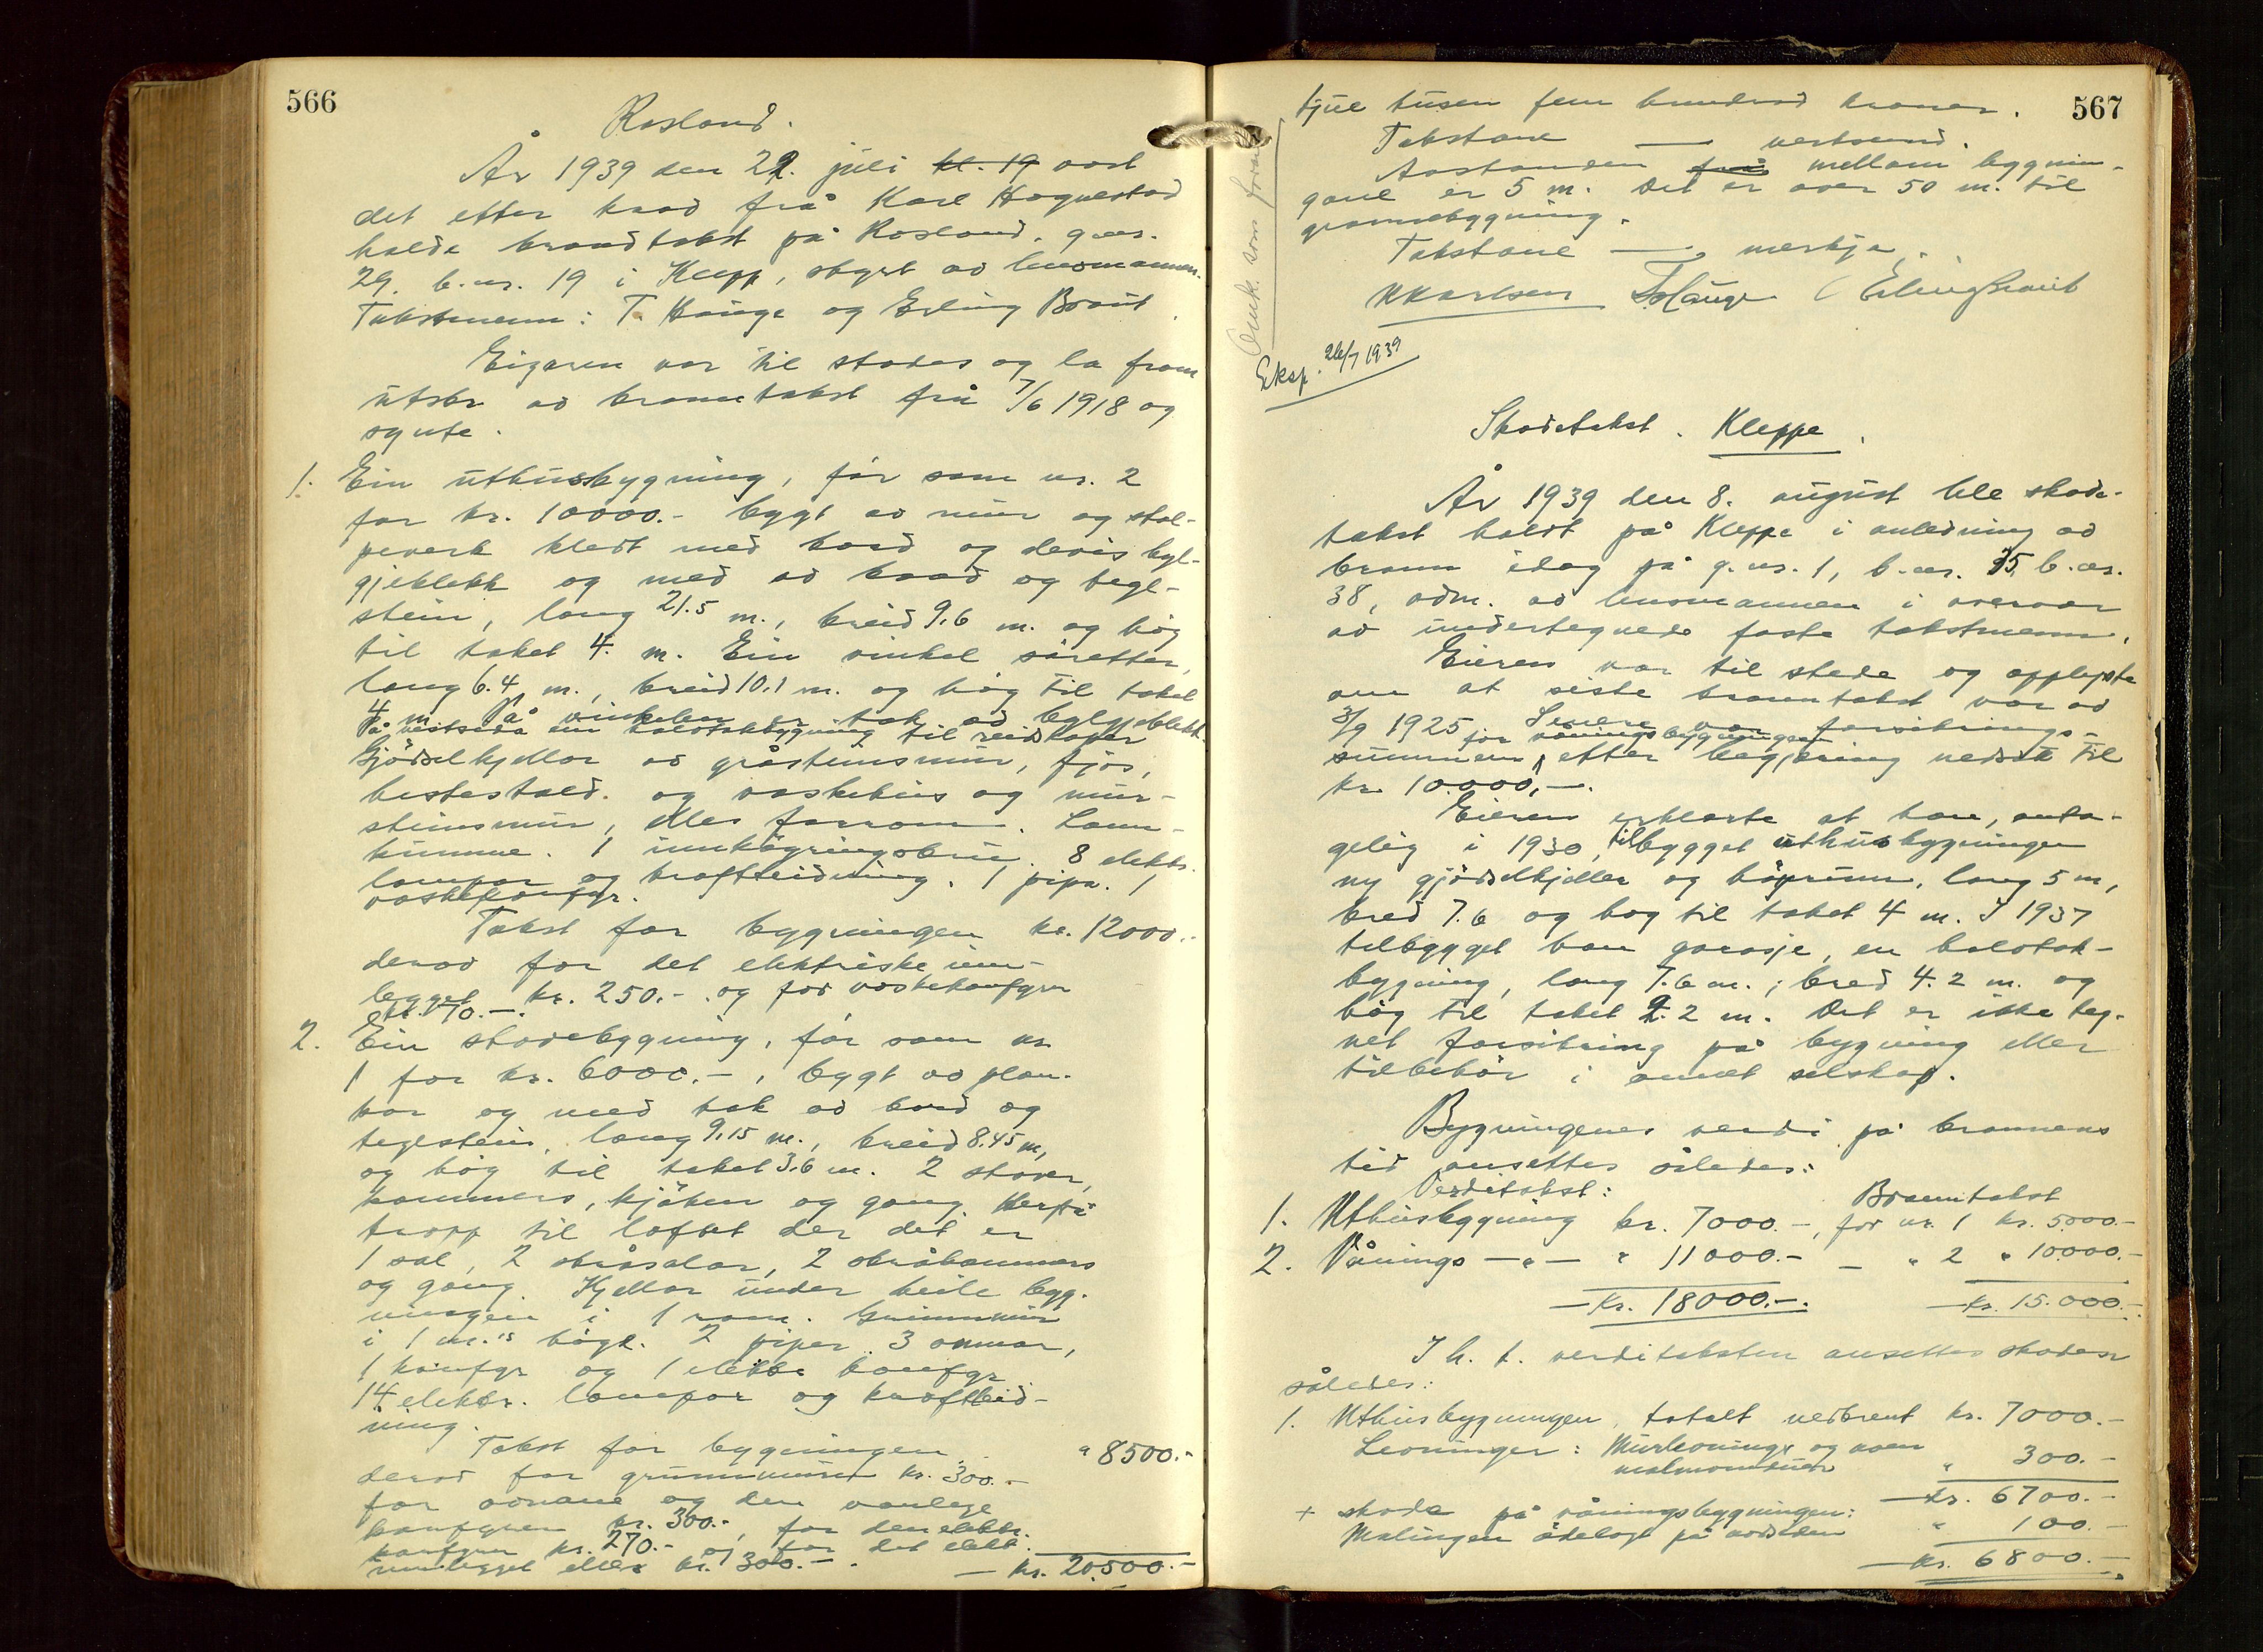 566
Rosland.
År 1939 den 22. juli kl. 19 vart
det etter krav frå Karl Hognestad
halde brandtakst på Rosland, g.nr.
29, b.nr. 19 i Klepp, styrt av lensmannen.
Takstmenn: T. Hauge og Erling Braut.
Eigaren var til stades og la fram
utskr av branntakst frå 7/6 1918 og
synte.
1. Ein uthusbygning, før som nr. 2
for kr. 10000.- bygt av mur og stol-
peverk kledt med bord og devis byl-
gjeblekk og med av bord og tegl-
stein, lang 21.5 m., breid 9.6 m. og høg
til taket 4. m. Ein vinkel søretter,
lang 6.4 m., breid 10.1 m. og høg til taket
4 m. På vinkelen er tak av bylgjeblekk.
På vestsida ein halvtakbygning til reidskaper
Gjødselkjellar av gråsteinsmur, fjøs,
hestestald. og vaskehus og mur-
steinsmur, elles forrom. Lann-
kumme. 1 innkøyringsbru. 8 elektr.
lampor og kraftleidning. 1 pipe. 1
vaskekomfyr.
Takst for bygningen kr. 12000.-
derav for det elektriske inn-
legget kr. 250.- og for vaskekomfyren
kr. 70.-.
2. Ein stovebygning, før som nr.
1 for kr. 6000.-, bygt av plan-
kar og med tak av bord og
teglstein, lang 9.15 m., breid 8.45 m,
og høg til taket 3.6 m. 2 stover,
kammers, kjøken og gang. Herfrå
tropp til loftet der det er
1 sal, 2 skråsalar, 2 skråkammers
og gang. Kjellar under heile byg-
ningen i 1 rom. Grunnmur
i 1 m.'s høgd. 2 piper. 3 omnar,
1 komfyr og 1 elektr komfyr
14 elektr. lampor og kraftleid-
ning.
Takst for bygningen " 8500.-
derav for grunnmuren kr. 300.-
for omnane og den vanlege
komfyren kr. 300.-, for den elektr.
komfyren kr. 270.- og for det elekt.
innlegget elles kr. 300.-.
— kr. 20.500.-
567
tjue tusen fem hundrad kronor.
Takstane — vertsend.
Avstanden frå mellom bygnin-
gane er 5 m. Det er over 50 m. til
grannebygning.
Takstane —, merkje.
KKarlsen THauge Erling Braut
Ank. som foran
Eksp. 26/7 1939
Skadetakst. Kleppe.
År 1939 den 8. august ble skade-
takst holdt på Kleppe i anledning av
brann idag på g.nr. 1, b.nr. 35, b.nr.
38, adm. av lensmannen i overvær
av undertegnede faste takstmenn.
Eieren var til stede og opplyste
om at siste branntakst var av
3/9 1925. Senere var forsikrings-
for våningsbygningen
summen, etter begjæring nedsatt til
kr. 10.000,-.
Eieren erklærte at han, anta-
gelig i 1930, tilbygget uthusbygningen
ny gjødselkjeller og høyrum, lang 5 m,
bred 7.6 og høg til taket 4 m. I 1937
tilbygget han garasje, en halvtak-
bygning, lang 7.6 m., bred 4.2 m. og
høg til taket 2.2 m. Det er ikke teg-
net forsikring på bygning eller
tilbehør i annet selskap.
Bygningenes verdi på brannens
tid ansettes således:
Verditakst: Branntakst
1. Uthusbygning kr. 7000.-, for nr. 1 kr. 5000.-
2. Vånings —"— " 11000.- — " 2 " 10000.-
— Kr. 18000.-. — kr. 15.000.-
I h. t. verditaksten ansettes skaden
således:
1. Uthusbygningen, totalt nedbrent kr. 7000.-
Levninger: Murlevninger og noen
" 300.-
— Kr. 6700.-
+ skade på våningsbygningen:
Malingen ødelagt på nordsiden " 100.-
— Kr. 6800.-